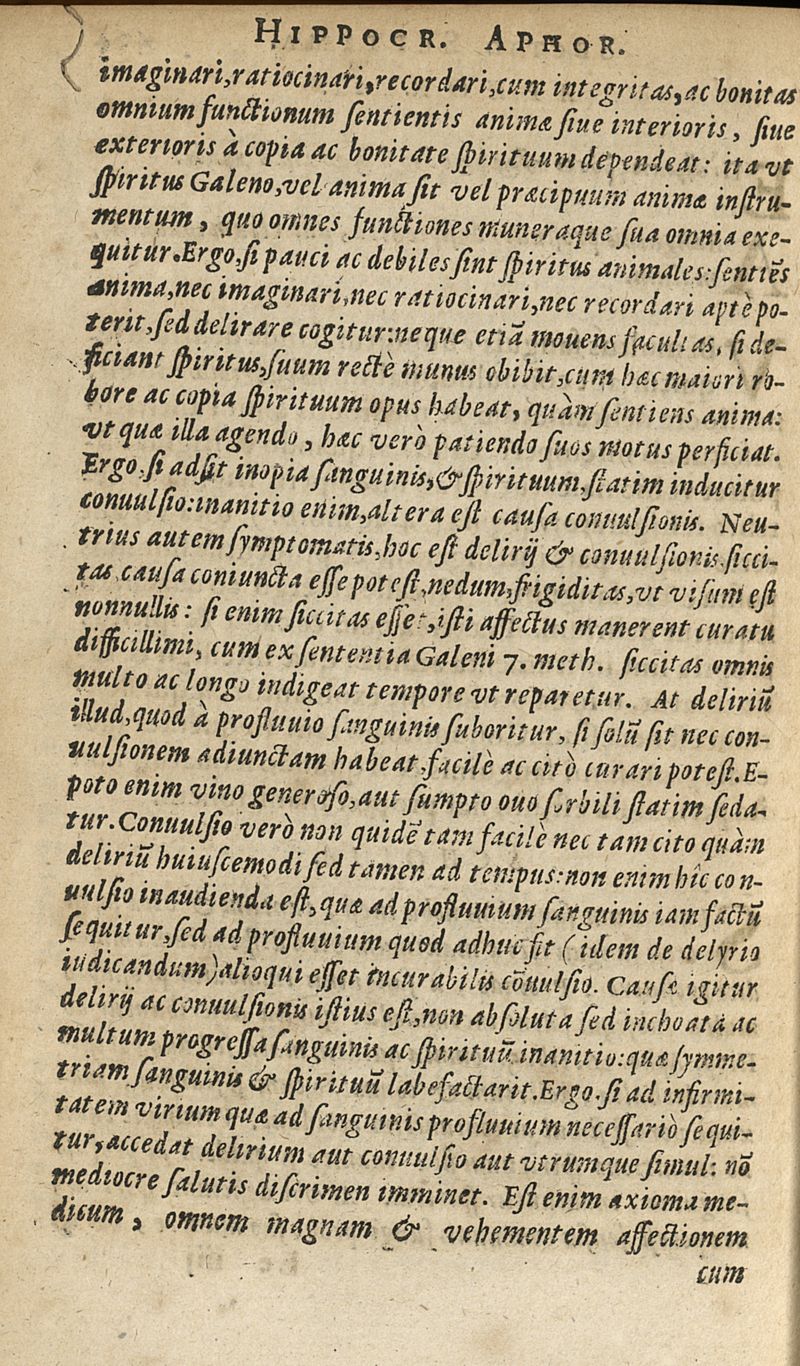 HIPPOCR. APHOR.
imaginari,ratiocinari,recordari,cum integritas,ac bonitas
omnium functionum ſentientis animæ ſiue interioris, ſiue
exterioris à copia ac bonitate ſpirituum dependeat: ita vt
ſpiritus Galeno,vel anima ſit vel præcipuum animæ inſtru-
mentum, quo omnes functiones muneraque ſua omnia exe-
quitur.Ergo,ſi pauci ac debiles ſint ſpiritus animales:ſentiẽs
anima,nec imaginari,nec ratiocinari,nec recordari aptè po-
terit,ſed delirare cogitur:neque etiã mouens facultas, ſi de-
ficiant ſpiritus,ſuum rectè munus obibit,cum hæc maiori ro-
bore ac copia ſpirituum opus habeat, quàm ſentiens anima:
vt quæ illa agendo, hæc verò patiendo ſuos motus perficiat.
Ergo.ſi adſit inopia ſanguinis,& ſpirituum,ſtatim inducitur
conuulſio:inanitio enim,altera eſt cauſa conuulſionis. Neu-
trius autem ſymptomatis,hoc eſt delirij & conuulſionis ſicci-
tas cauſa coniuncta eſſe poteſt,nedum,frigiditas,vt viſum eſt
nonnullis: ſi enim ſiccitas eſſet,iſti affectus manerent curatu
difficillimi, cum ex ſententia Galeni 7. meth. ſiccitas omnis
multo ac longo indigeat tempore vt reparetur. At deliriũ
illud,quod à profluuio ſanguinis ſuboritur, ſi ſolũ ſit nec con-
uulſionem adiunctam habeat,facilè ac citò curari poteſt.E-
poto enim vino generoſo,aut ſumpto ouo ſorbili ſtatim ſeda-
tur.Conuulſio verò non quidẽ tam facilè nec tam cito quàm
deliriũ huiuſcemodi ſed tamen ad tempus:non enim hîc con-
uulſio inaudienda eſt,quæ ad profluuium ſanguinis iam factũ
ſequitur,ſed ad profluuium quod adhuc fit (idem de delyrio
iudicandum)alioqui eſſet incurabilis cõuulſio. Cauſa igitur
delirij ac conuulſionis iſtius eſt,non abſoluta ſed inchoata ac
multum progreſſa ſanguinis ac ſpirituũ inanitio:quæ ſymme-
triam ſanguinis & ſpirituũ labefactarit.Ergo.ſi ad infirmi-
tatem virium quæ ad ſanguinis profluuium neceſſariò ſequi-
tur,accedat delirium aut conuulſio aut vtrumque ſimul: nõ
mediocre ſalutis diſcrimen imminet. Eſt enim axioma me-
dicum, omnem magnam & vehementem affectionem
cum